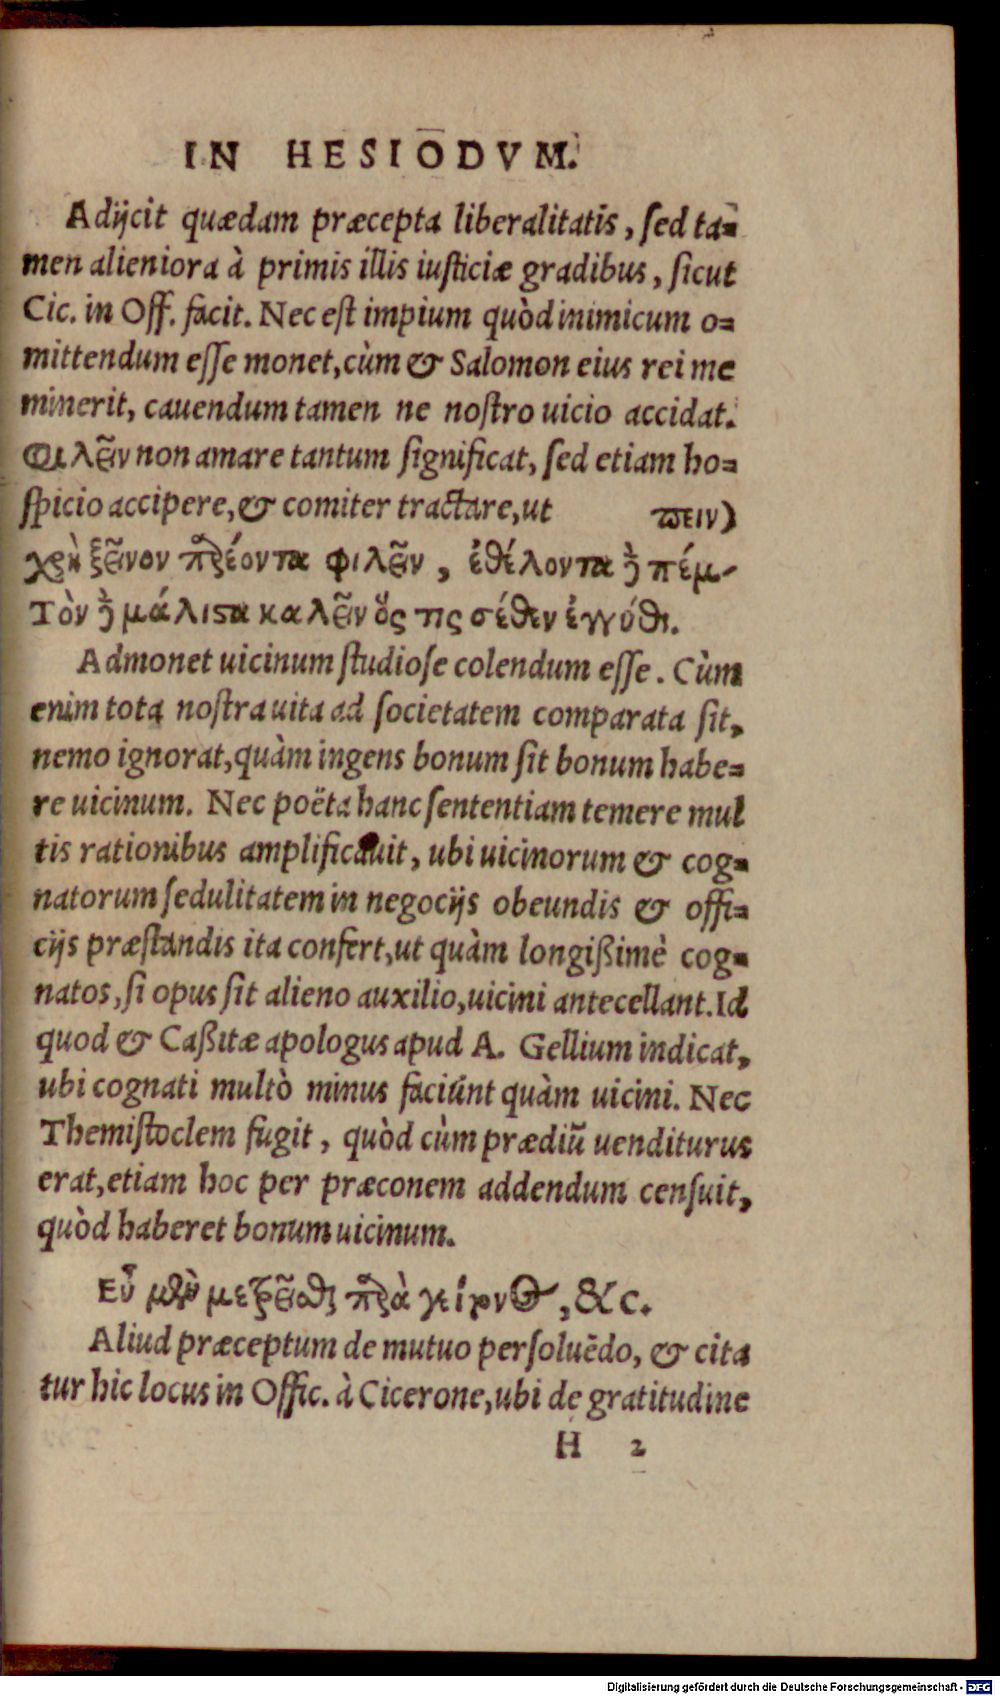 IN HESIODVM.
Adijcit quædam præcepta liberalitatis, sed ta=
men alieniora à primis illis iusticiæ gradibus, sicut
Cic. in Off. facit. Nec est impium quòd inimicum o=
mittendum esse monet, cùm & Salomon eius rei me
minerit, cauendum tamen ne nostro uicio accidat.
Φιλεῖν non amare tantum significat, sed etiam ho=
spicio accipere, & comiter tractare, ut πειν)
χρὴ ξεῖνον παρέοντα φιλεῖν, ἐθέλοντα δὲ πέμ-
Τὸν δὲ μάλιστα καλεῖν ὅς τις σέθεν ἐγγύθι.
Admonet uicinum studiose colendum esse. Cùm
enim tota nostra uita ad societatem comparata sit,
nemo ignorat, quàm ingens bonum sit bonum habe=
re uicinum. Nec poëta hanc sententiam temere mul
tis rationibus amplificauit, ubi uicinorum & cog=
natorum sedulitatem in negocijs obeundis & offi=
cijs præstandis ita confert, ut quàm longißimè cog=
natos, si opus sit alieno auxilio, uicini antecellant. Id
quod & Caßitæ apologus apud A. Gellium indicat,
ubi cognati multò minus faciunt quàm uicini. Nec
Themistoclem fugit, quòd cùm prædiũ uenditurus
erat, etiam hoc per præconem addendum censuit,
quòd haberet bonum uicinum.
Εὖ μὲν μετρεῖσθαι παρὰ γείτονος, &c.
Aliud præceptum de mutuo persoluẽdo, & cita
tur hic locus in Offic. à Cicerone, ubi de gratitudine
H 2
Digitalisierung gefördert durch die Deutsche Forschungsgemeinschaft - DFG